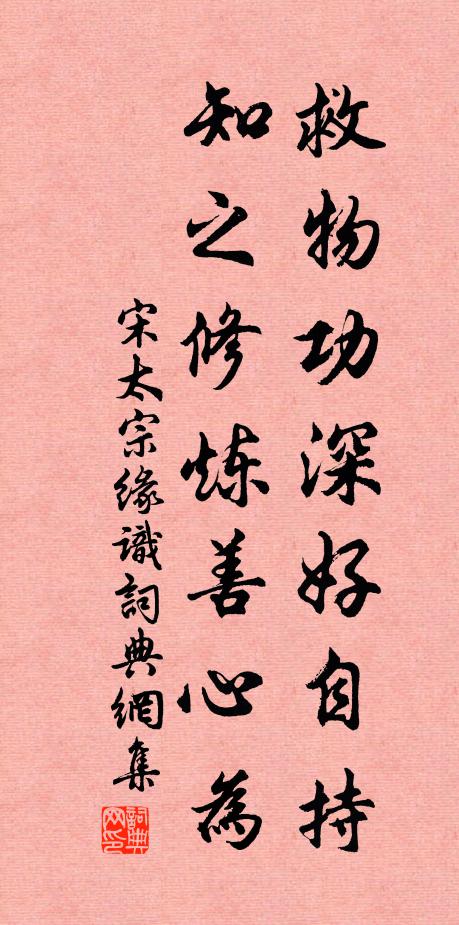 救物功深好自持
知之修炼善心為
宋太宗緣識詞典網集
詞典网印